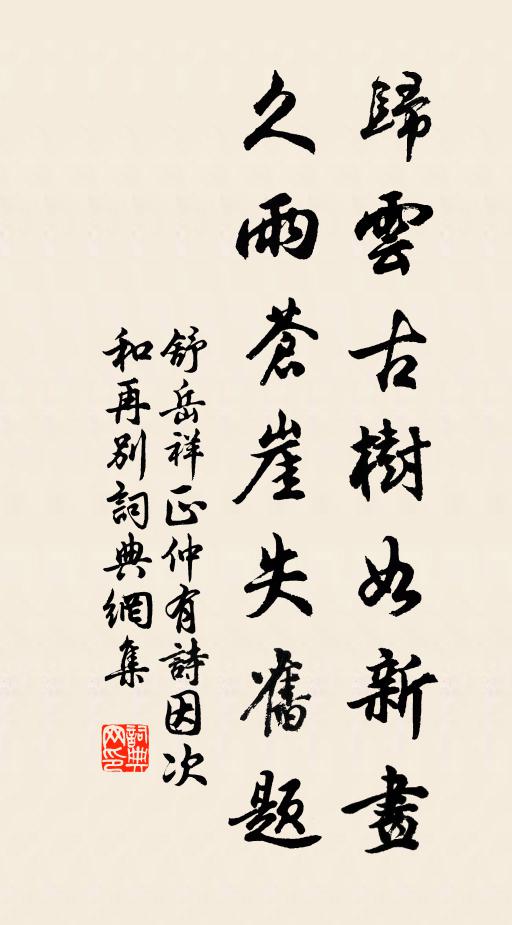 歸雲古樹如新畫
久雨蒼崖失舊題
舒岳祥正仲有詩因次
和再別詞典網集
詞典
网印